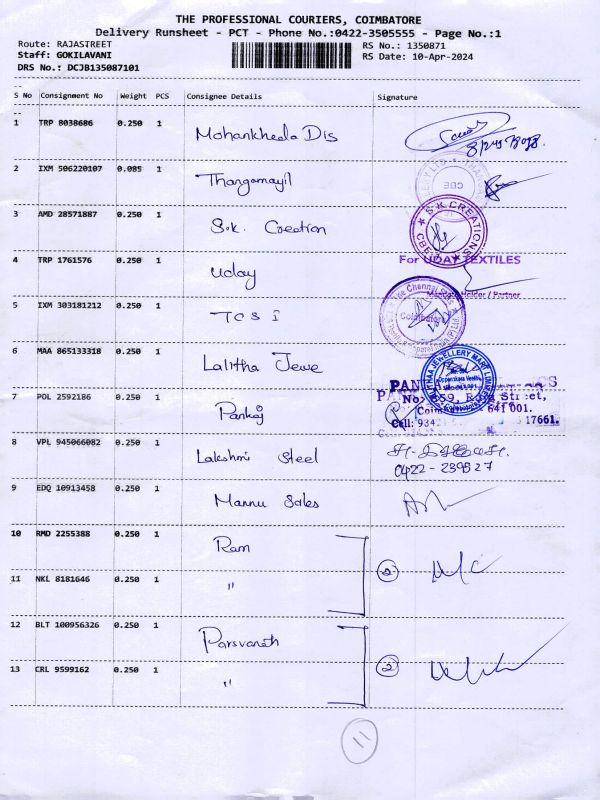 THE PROFESSIONAL COURIERS, COIMBATORE
Delivery Runsheet - PCT - Phone No.:0422-3505555 - Page No.:1
Route: RAJASTREET
RS No.: 1350871
Staff: GOKILAVANI
RS Date: 10-Apr-2024
DRS No.: DCJB135087101
S No Consignment No Weight PCS Consignee Details Signature
1 TRP 8038686 0.250 1 Mohankheda Dis
2 IXM 506220107 0.085 1 Thangamayil
3 AMD 28571887 0.250 1 S.K. Creation
S.K. CREATIONS
CBE
4 TRP 1761576 0.250 1 Uday
For UDAY TEXTILES
Holder / Partner
5 IXM 303181212 0.250 1 TCS I
Coimbatore
6 MAA 865133318 0.250 1 Lalitha Jewe
JEWELLERY MART
7 POL 2592186 0.250 1 Pankaj
No: 859, Raja Street,
641 001.
Cell: 9342 17661.
8 VPL 945066082 0.250 1 Lakshmi Steel
0422-239527
9 EDQ 10913458 0.250 1 Mannu Sales
10 RMD 2255388 0.250 1 Ram
11 NKL 8181646 0.250 1 "
2
12 BLT 100956326 0.250 1 Parsvanath
13 CRL 9599162 0.250 1 "
2
11